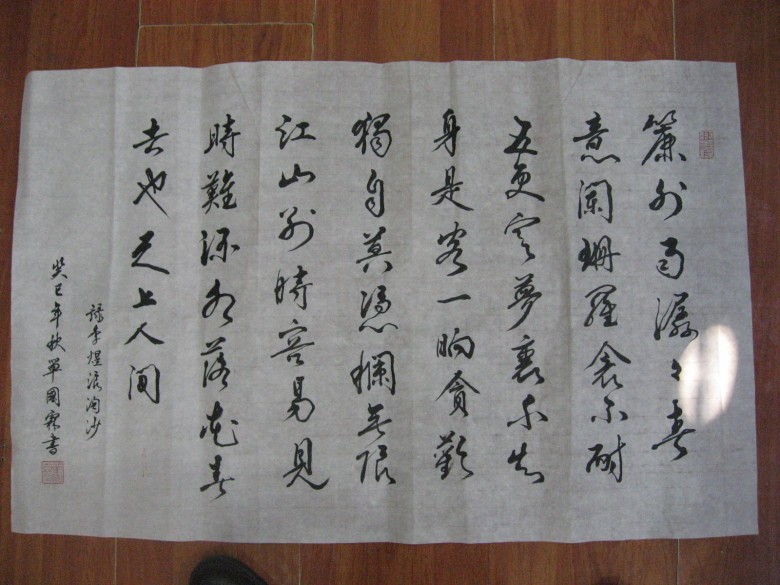 簾外雨潺々春
意闌珊羅衾不耐
五更寒夢裏不知
身是客一晌貪歡
獨自莫憑欄無限
江山别時容易見
時難流水落花春
去也天上人間
李煜浪淘沙
癸巳年秋單國霖書